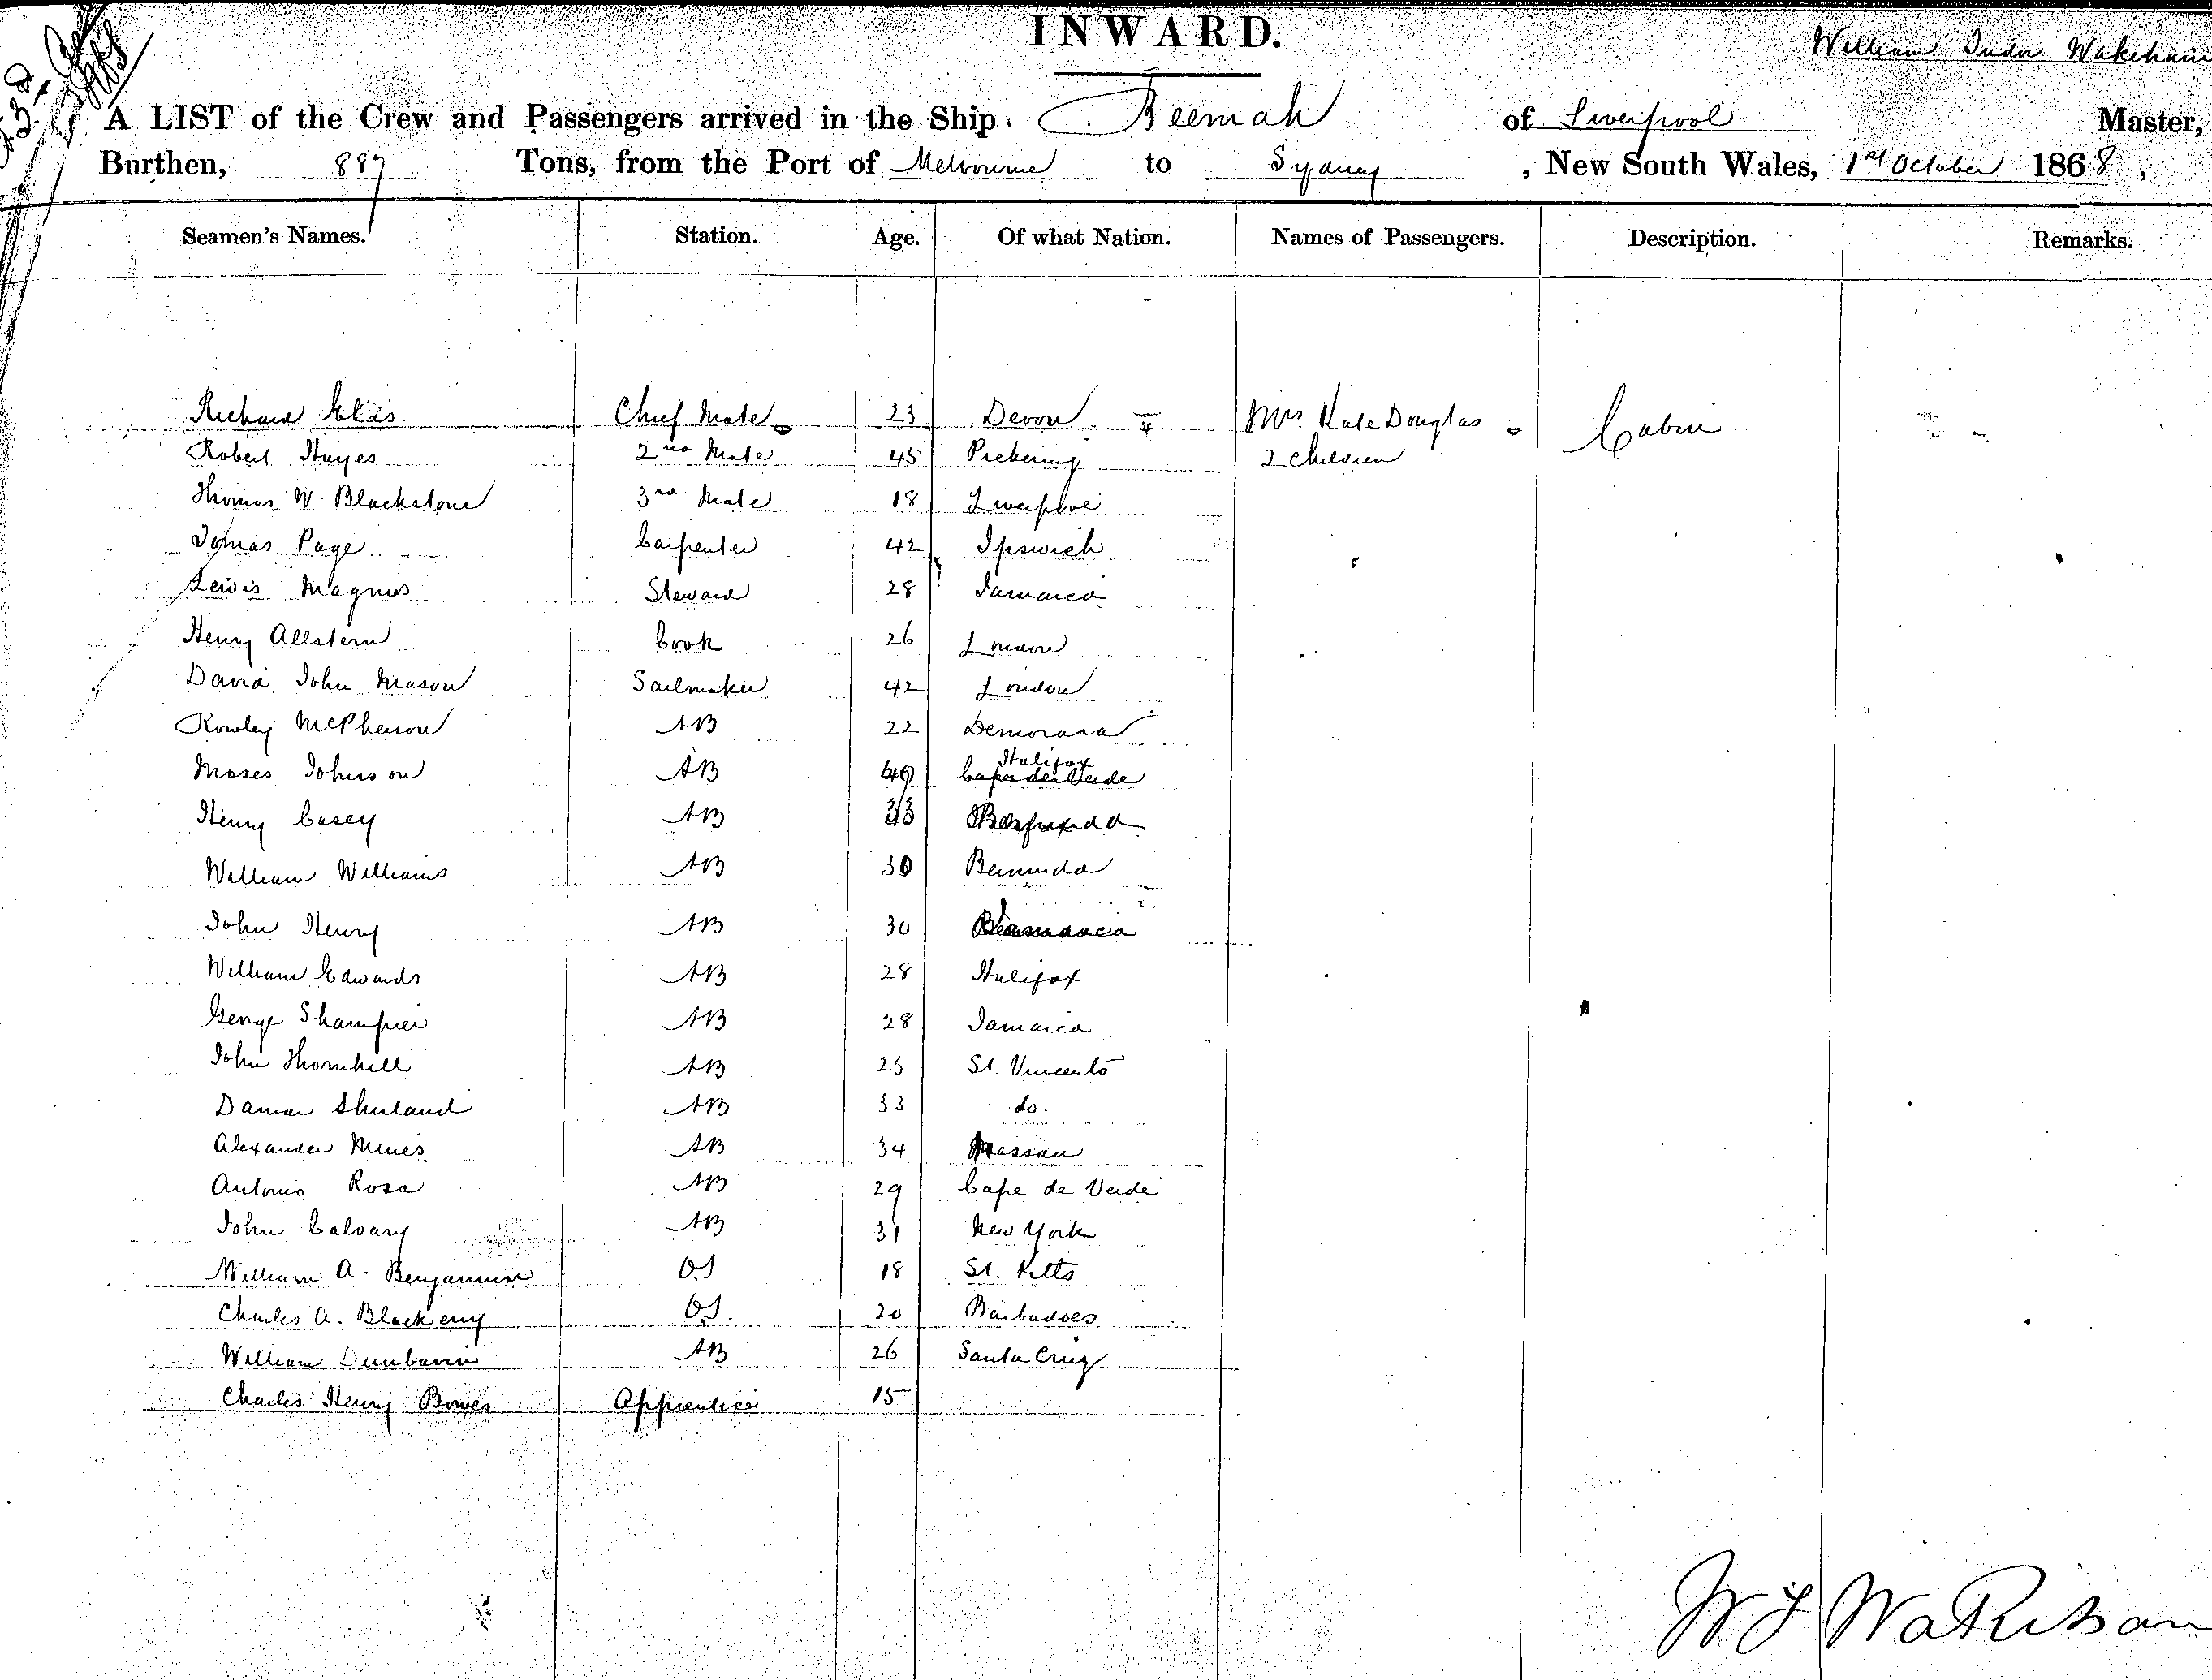 INWARD.
William Wakeham
A LIST of the Crew and Passengers arrived in the Ship Beemah of Liverpool Master,
Burthen, 887 Tons, from the Port of Melbourne to Sydney, New South Wales, 1st October 1868,
Seamen's Names. Station. Age. Of what Nation. Names of Passengers. Description. Remarks.
Richard Chief Mate 23 Devon Mrs. Kate Douglas Cabin
Robert Hayes 2nd Mate 45 Pickering 2 Children
Thomas W. Blackstone 3rd Mate 18 Liverpool
Page Carpenter 42 Ipswich
Lewis Magnus Steward 28 Jamaica
Henry Allstern Cook 26 London
David John Mason Sailmaker 42 London
Rowley McPherson AB 22 Demorara
Halifax
Moses Johnson AB Cape de Verde
Henry Casey AB 33
William Williams AB 30 Bermuda
John Henry AB 30
William Edwards AB 28 Halifax
George Shampier AB 28 Jamaica
John Thornhill AB 25 St. Vincents
AB 33 do.
Alexander AB 34 Nassau
Antonio Rosa AB 29 Cape de Verde
John Calvary AB 31 New York
William A. Benjamin O.S 18 St. Kitts
Charles A. O.S. 20 Barbadoes
William Dunbavin AB 26 Santa Cruz
Charles Henry Bowes Apprentice 15